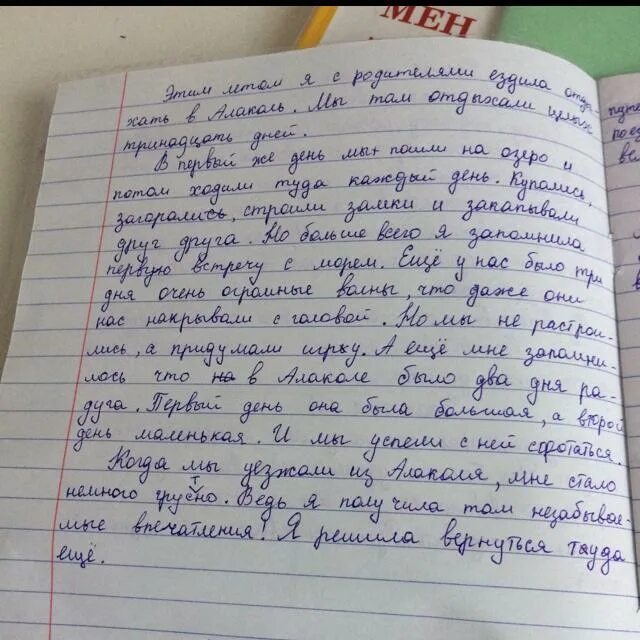 МЕН
Этим летом я с родителями ездила отды-
хать в Алаколь. Мы там отдыхали целых
тринадцать дней.
В первый же день мы пошли на озеро и
потом ходили туда каждый день. Купались,
загорались, строили замки и закапывали
друг друга. Но больше всего я запомнила
первую встречу с морем. Ещё у нас было три
дня очень огромные волны, что даже они
нас накрывали с головой. Но мы не растрои-
лись, а придумали игру. А ещё мне запомни-
лось что в Алаколе было два дня ра-
дуга. Первый день она была большая, а второй
день маленькая. И мы успели с ней сфотаться.
Когда мы уезжали из Алаколя, мне стало
немного грустно. Ведь я получила там незабывае-
мые впечатления! Я решила вернуться туда
ещё.